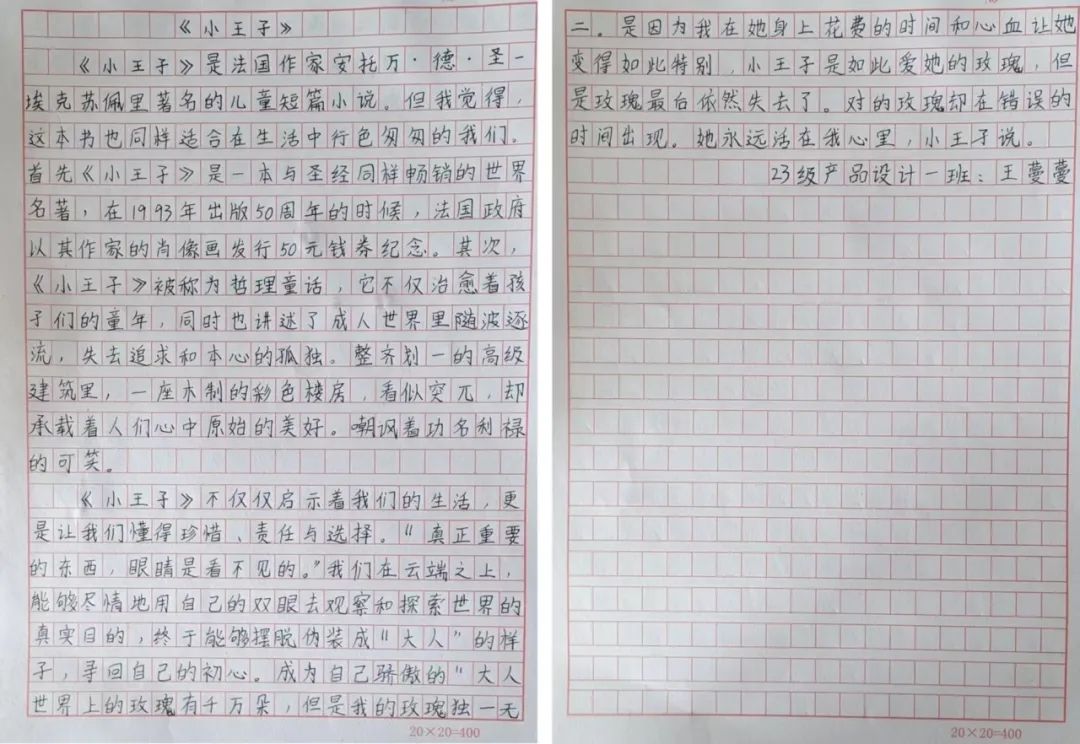 《小王子》
《小王子》是法国作家安托万·德·圣-
埃克苏佩里著名的儿童短篇小说。但我觉得，
这本书也同样适合在生活中行色匆匆的我们。
首先《小王子》是一本与圣经同样畅销的世界
名著，在1993年出版50周年的时候，法国政府
以其作家的肖像画发行50元钱券纪念。其次，
《小王子》被称为哲理童话，它不仅治愈着孩
子们的童年，同时也讲述了成人世界里随波逐
流，失去追求和本心的孤独。整齐划一的高级
建筑里，一座木制的彩色楼房，看似突兀，却
承载着人们心中原始的美好。嘲讽着功名利禄
的可笑。
《小王子》不仅仅启示着我们的生活，更
是让我们懂得珍惜、责任与选择。“真正重要
的东西，眼睛是看不见的。”我们在云端之上，
能够尽情地用自己的双眼去观察和探索世界的
真实目的，终于能够摆脱伪装成“大人”的样
子，寻回自己的初心。成为自己骄傲的“大人
世界上的玫瑰有千万朵，但是我的玫瑰独一无
20×20=400
二。是因为我在她身上花费的时间和心血让她
变得如此特别，小王子是如此爱她的玫瑰，但
是玫瑰最后依然失去了。对的玫瑰却在错误的
时间出现。她永远活在我心里，小王子说。
23级产品设计一班：王蔓蔓
20×20=400